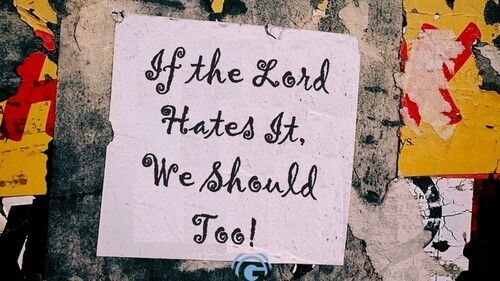 If the Lord
Hates It,
We Should
Too!
vs.
G